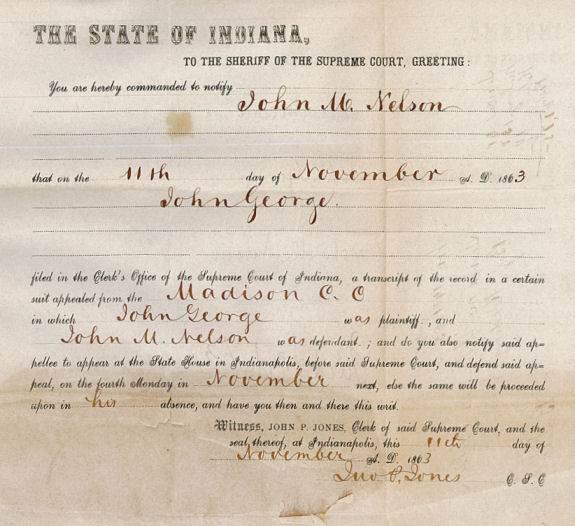 THE STATE OF INDIANA,
TO THE SHERIFF OF THE SUPREME COURT, GREETING:
You are hereby commanded to notify John M. Nelson
that on the 11th day of November A. D. 1863
John George.
filed in the Clerk's Office of the Supreme Court of Indiana, a transcript of the record in a certain
suit appealed from the Madison C. C
in which John George was plaintiff., and
John M. Nelson was defendant.; and do you also notify said ap=
pellee to appear at the State House in Indianapolis, before said Supreme Court, and defend said ap=
peal, on the fourth Monday in November next, else the same will be proceeded
upon in his absence, and have you then and there this writ.
Witness, JOHN P. JONES, Clerk of said Supreme Court, and the
seal thereof, at Indianapolis, this 11th day of
November A. D. 1863
Jno P. Jones C. S. C